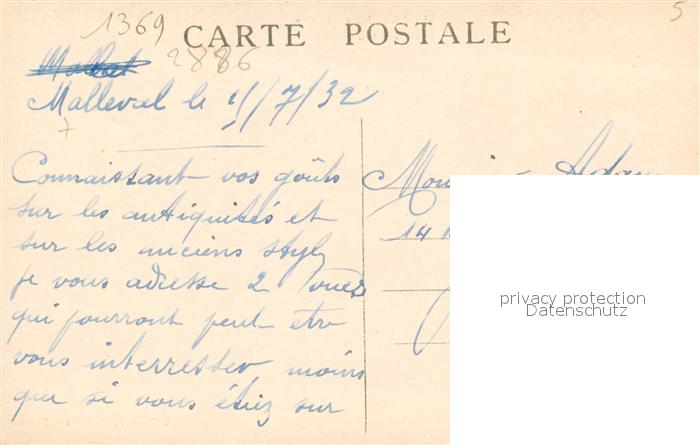 1369
5
CARTE POSTALE
2886
Malleval le 4/7/32
Connaissant vos goûts
sur les antiquités et
sur les anciens styl
je vous adresse 2 vues
qui pourront peut etre
vous interresser moins
que si vous étiez sur
14
privacy protection
Datenschutz